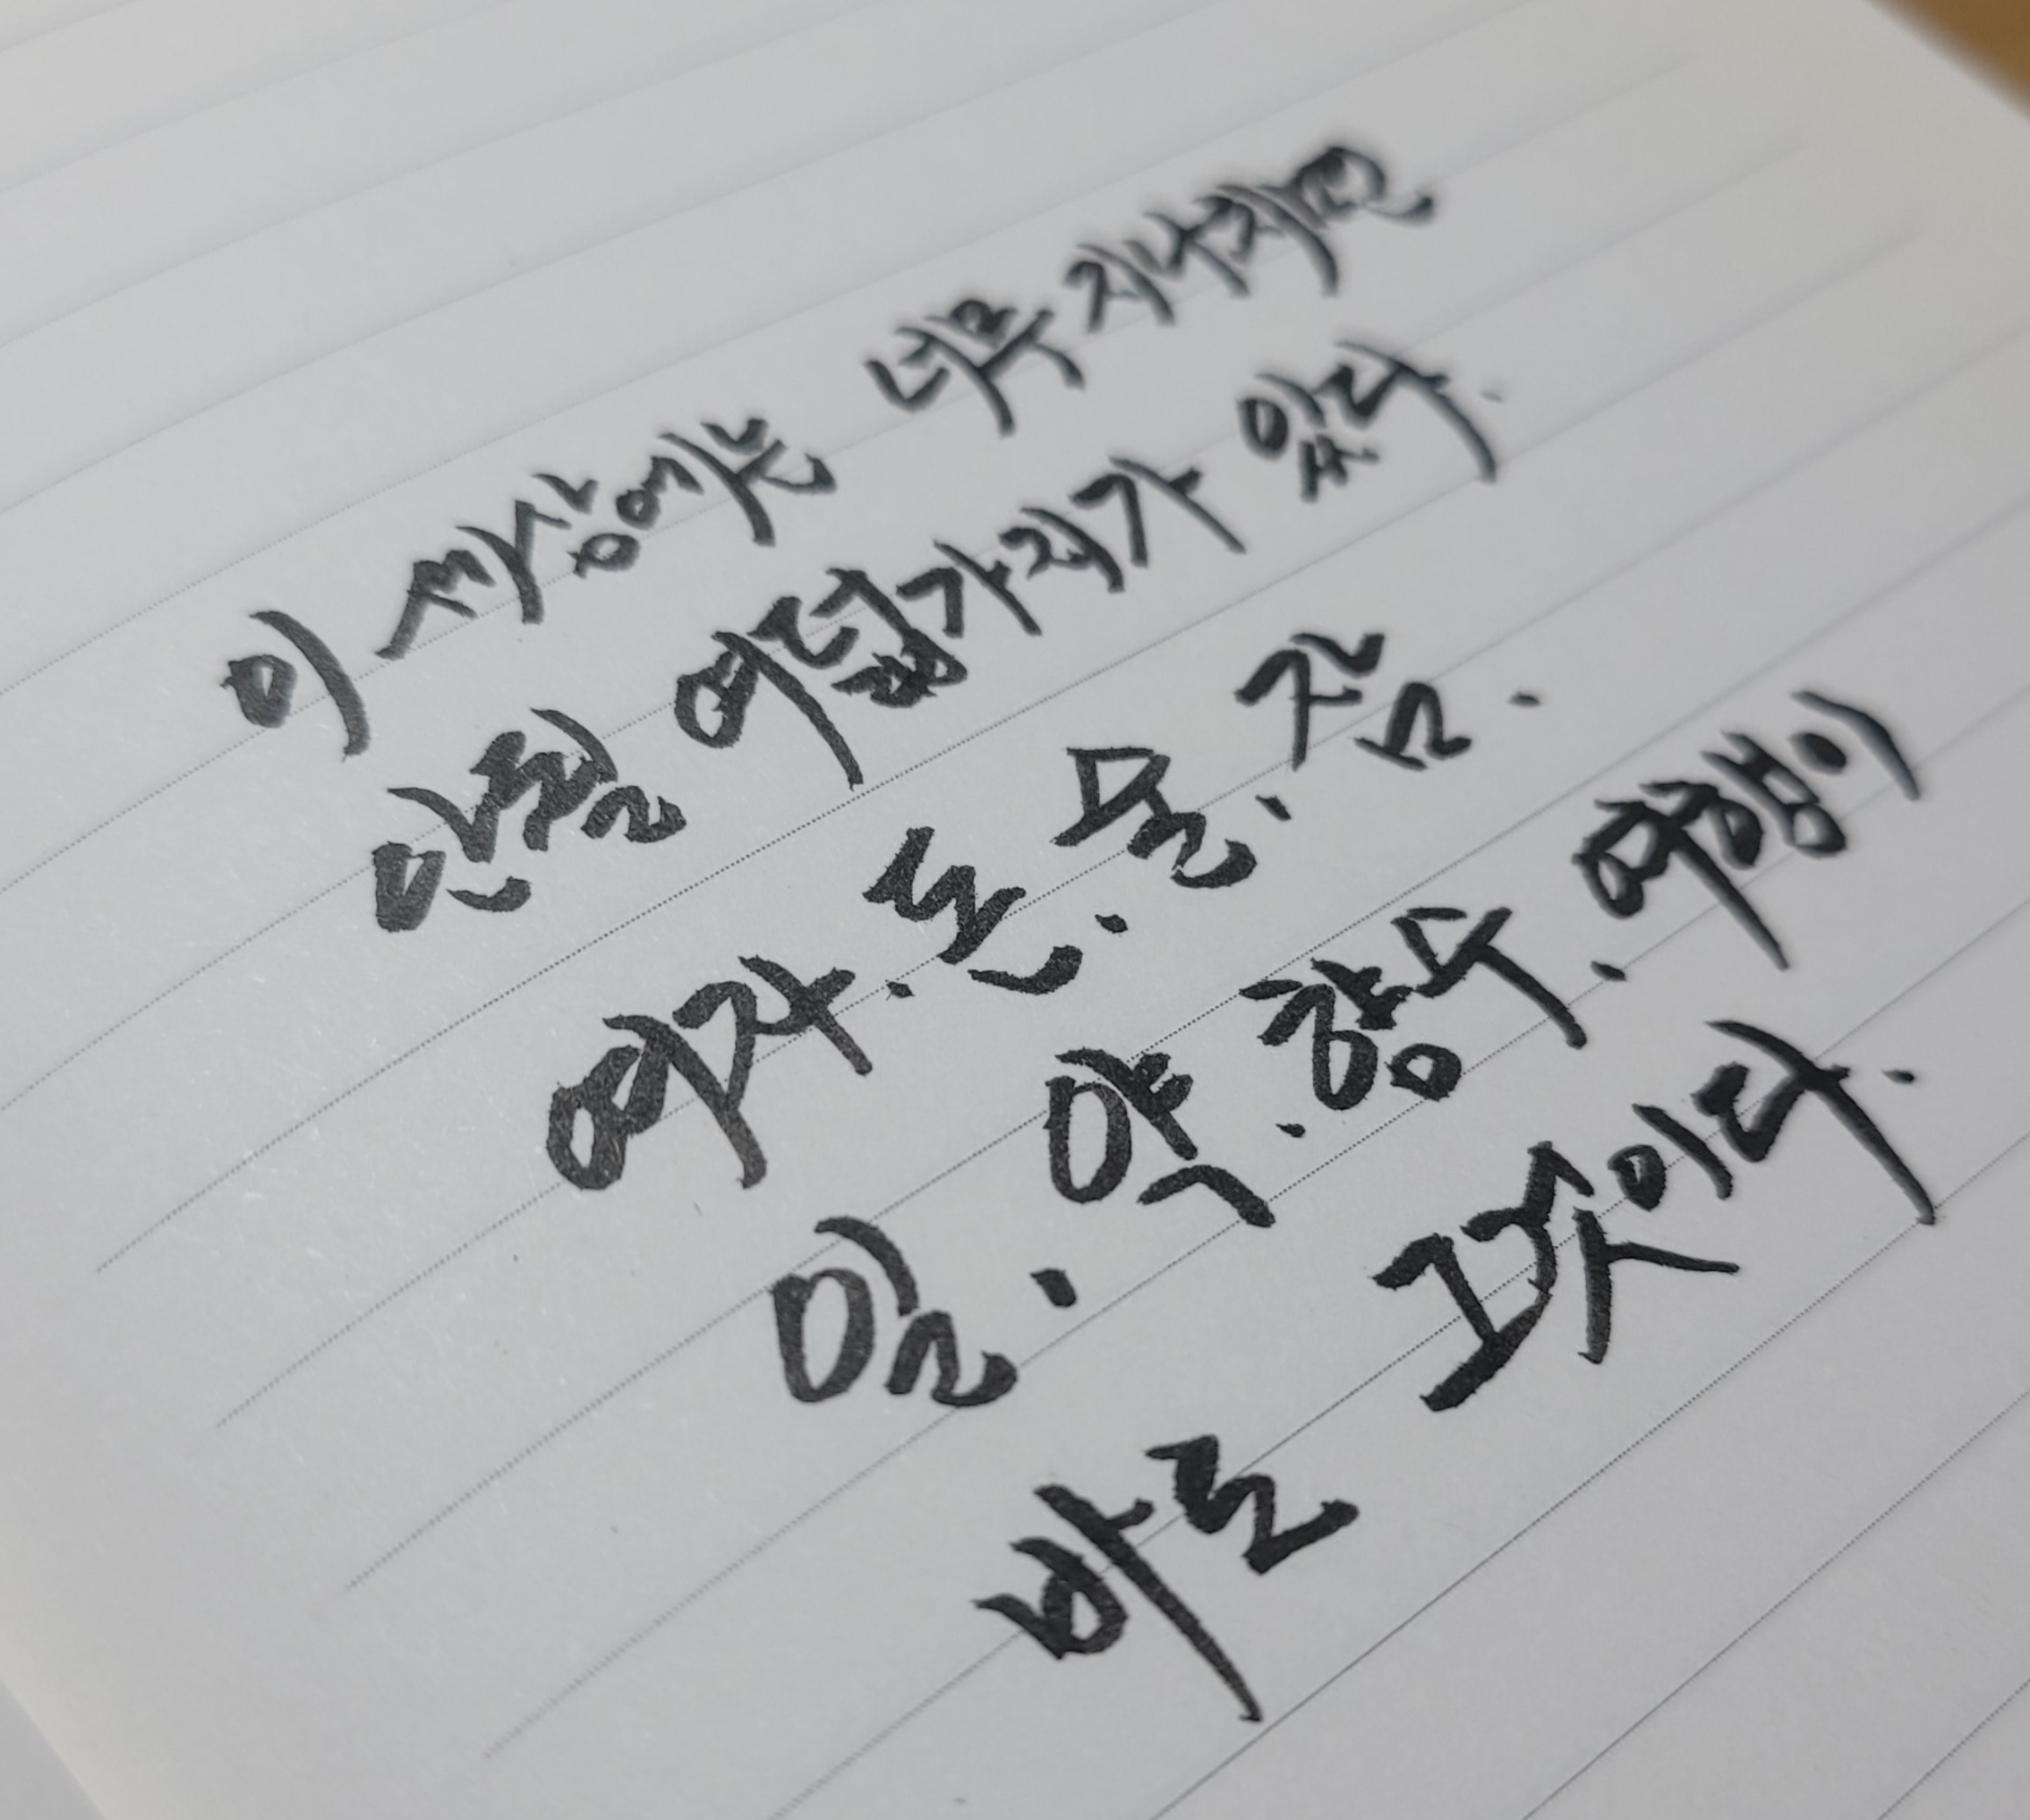 이 세상에는 너무 지나치면
안될 여덟가지가 있다.
여자. 돈. 술. 잠.
일. 약. 향수. 여행이
바로 그것이다.